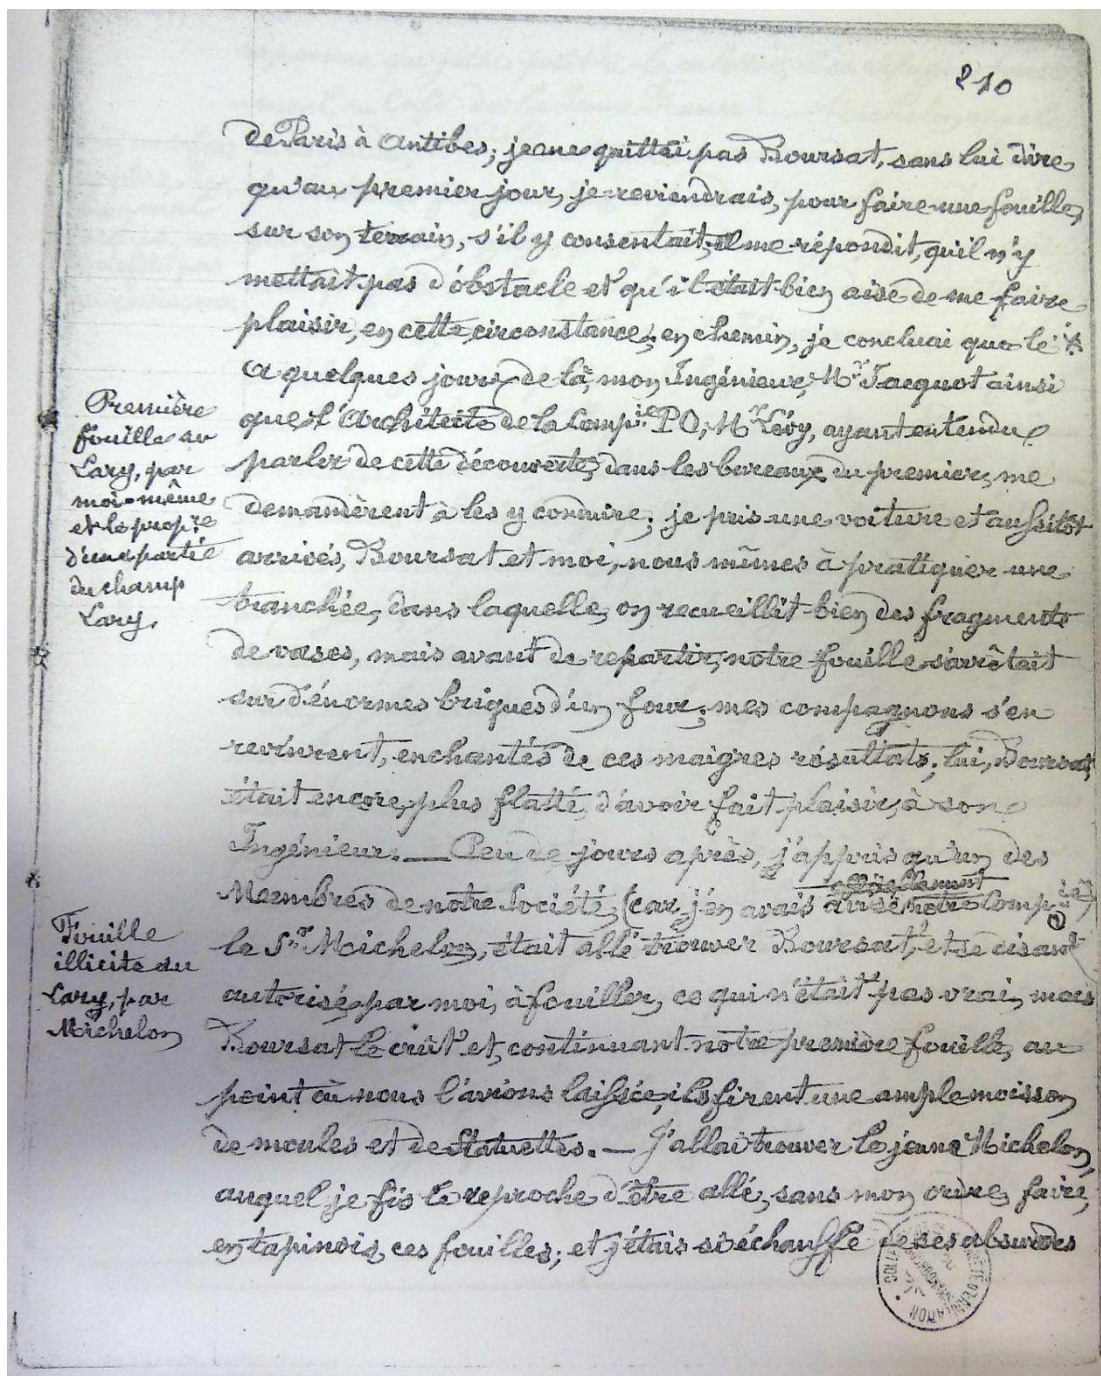 210
de Paris à Antibes; je ne quittai pas Boursat, sans lui dire
qu'au premier jour, je reviendrais, pour faire une fouille,
sur son terrain, s'il y consentait; il me répondit, qu'il n'y
mettait pas d'obstacle et qu'il était bien aise de me faire
plaisir, en cette circonstance; en chemin, je concluai que le
A quelques jours de là, mon Ingénieur, Mr Jacquot ainsi
que l'Architecte de la Compie PO, Mr Lévy, ayant entendu
parler de cette découverte, dans les bureaux du premier, me
demandèrent à les y conduire; je pris une voiture et aussitôt
arrivés, Boursat et moi, nous mîmes à pratiquer une
tranchée, dans laquelle, on recueillit bien des fragments
de vases, mais avant de repartir, notre fouille s'arrêtait
sur d'énormes briques d'un four; mes compagnons s'en
revinrent, enchantés de ces maigres résultats; lui, Boursat,
était encore, plus flatté, d'avoir fait plaisir, à son
Ingénieur. — Peu de jours après, j'appris qu'un des
Membres de notre Société, (car j'en avais avisé notre Compie)
le Sr Michelon, était allé trouver Boursat, et se disant
autorisé par moi, à fouiller, ce qui n'était pas vrai, mais
Boursat le crût et, continuant notre première fouille, au
point où nous l'avions laissée, ils firent une ample moisson
de moules et de statuettes. — J'allai trouver le jeune Michelon,
auquel je fis le reproche d'être allé, sans mon ordre, faire,
en tapinois, ces fouilles; et j'étais si échauffé de ses absurdes
Première
fouille au
Lary, par
moi-même
et le propre
d'une partie
du champ
Lary.
Fouille
illicite au
Lary, par
Michelon